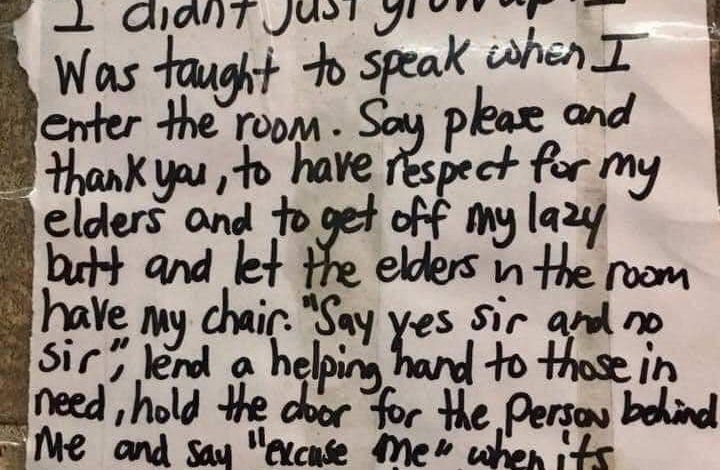 I didn't just grow up. I
Was taught to speak when I
enter the room. Say please and
thank you, to have respect for my
elders and to get off my lazy
butt and let the elders in the room
have my chair. "Say yes sir and no
sir", lend a helping hand to those in
need, hold the door for the Person behind
Me and say "excuse me" when its